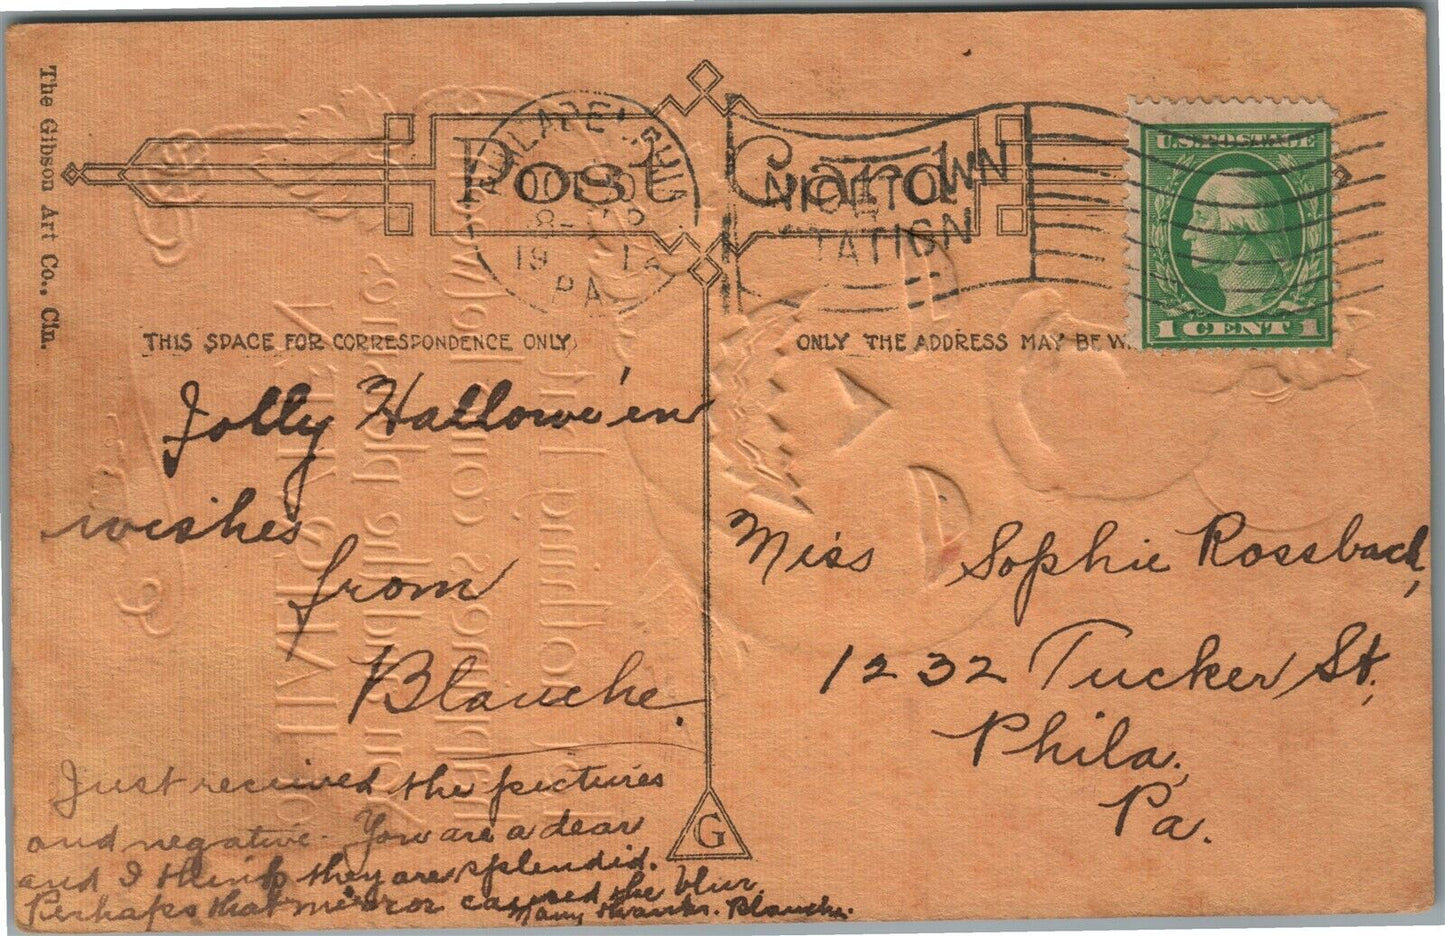 The Gibson Art Co., Cin.
Post Card
PHILADELPHIA
PA
NICETOWN
STATION
U.S. POSTAGE
1 CENT 1
THIS SPACE FOR CORRESPONDENCE ONLY
ONLY THE ADDRESS MAY BE
Jolly Hallowe'en
wishes
from
Blanche.
Just received the pictures
and negative. You are a dear
and I think they are splendid.
Perhaps that mirror caused the blur.
Many thanks. Blanche.
G
Miss Sophie Rossbach,
1232 Tucker St,
Phila.,
Pa.